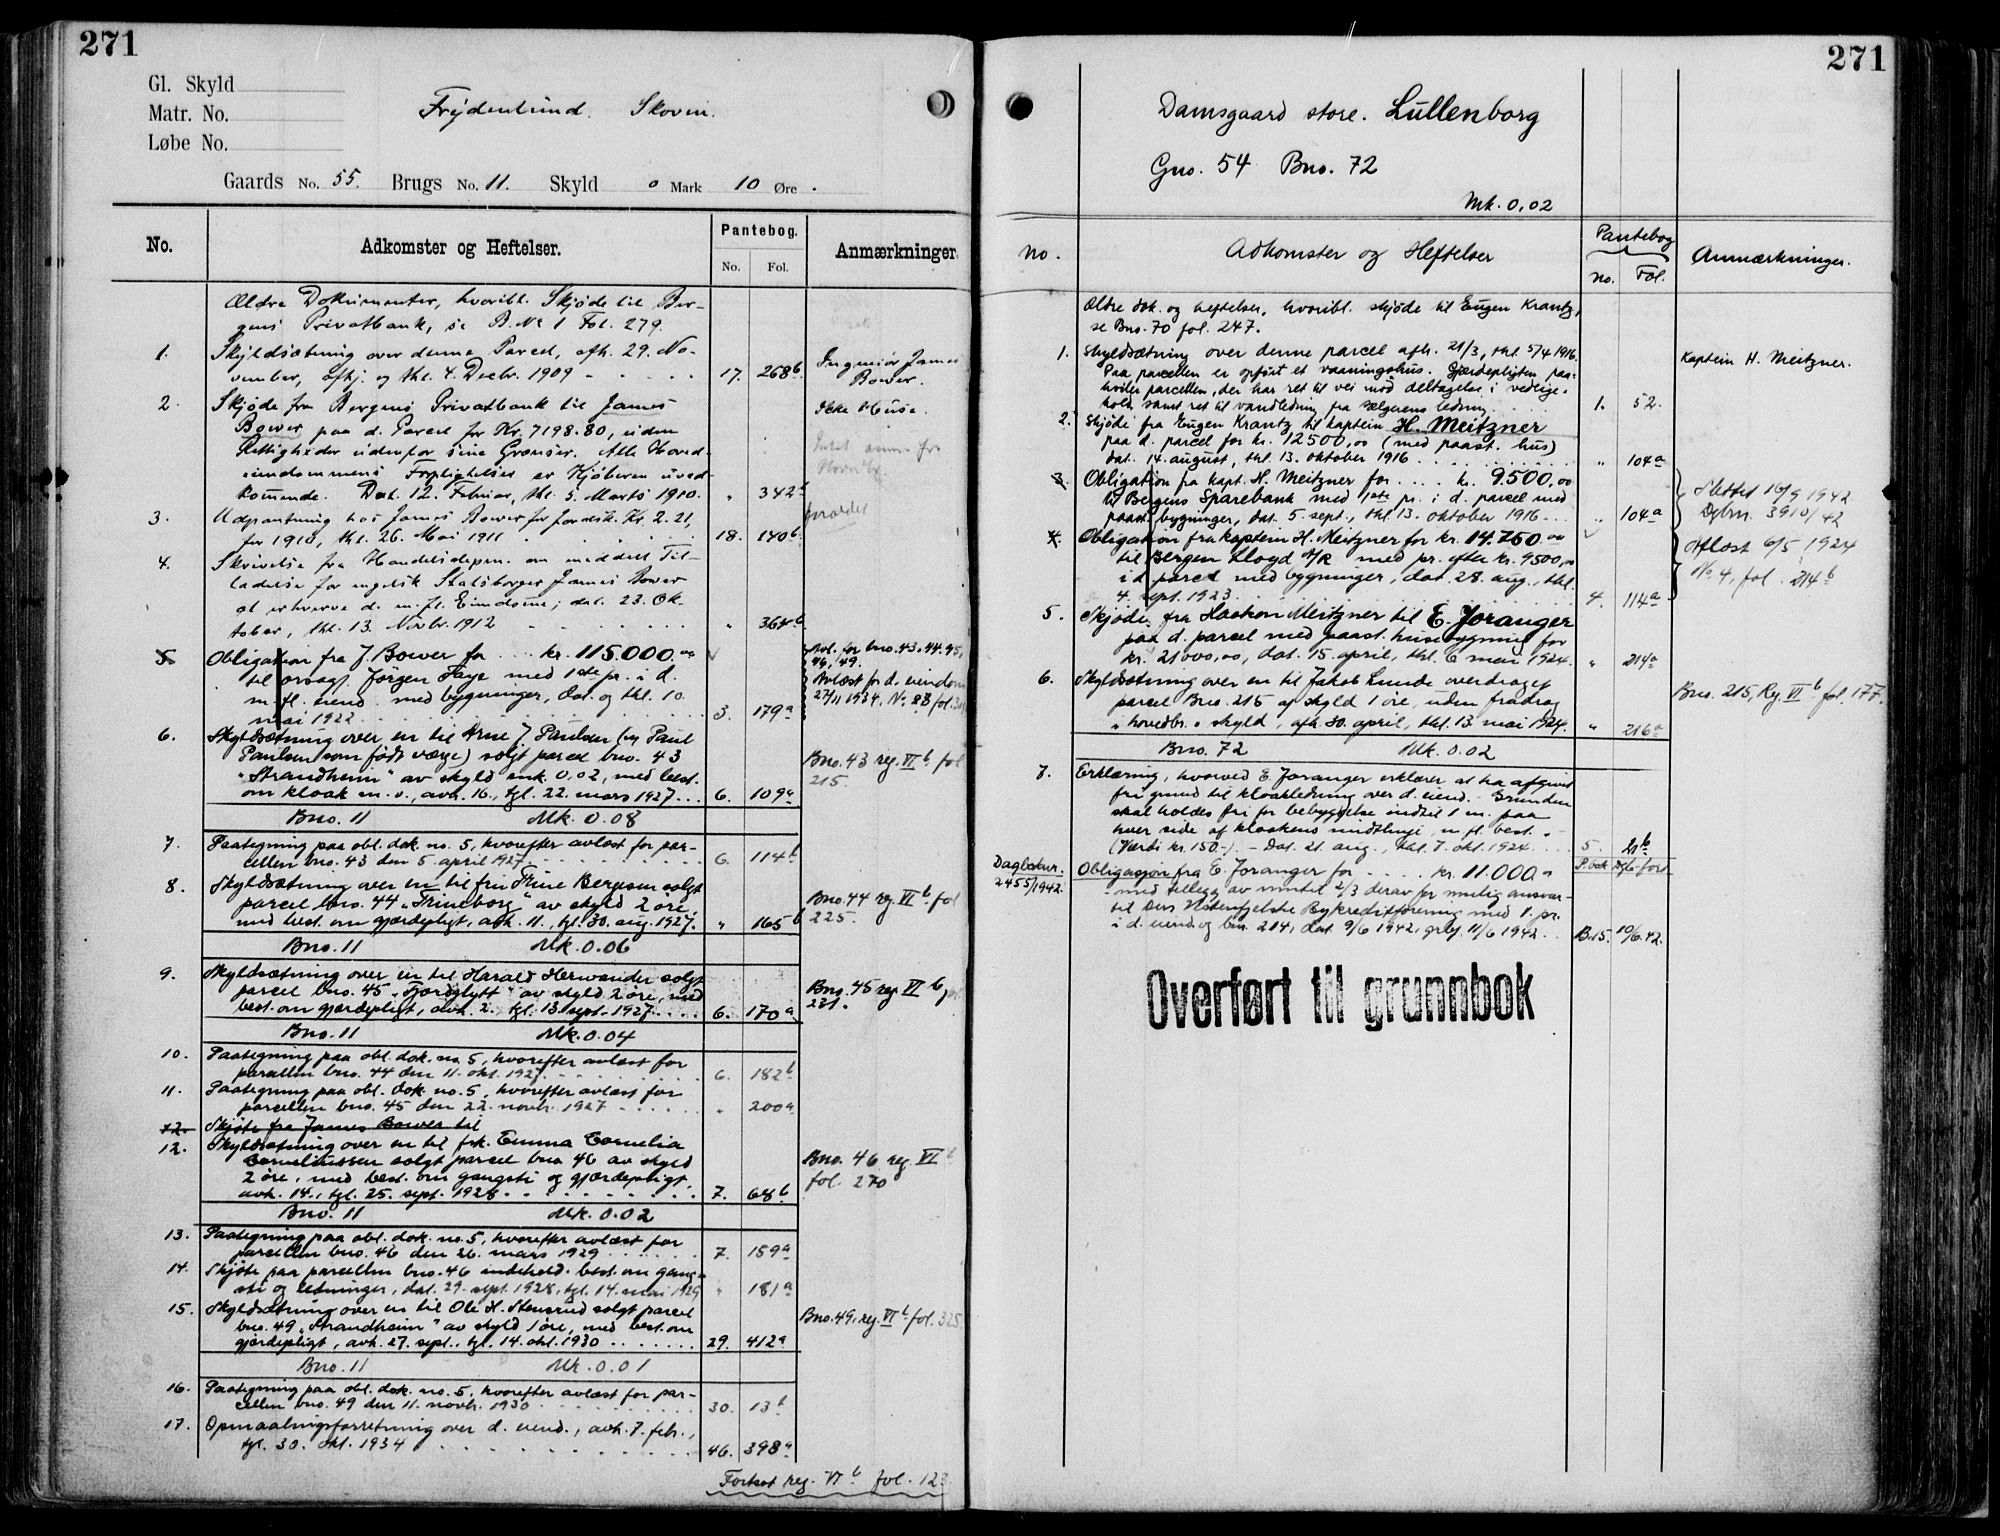 271
Gl. Skyld
Matr. No.
Løbe No.
Frydenlund. Skoven.
Gaards No. 55. Brugs No. 11. Skyld 0 Mark 10 Øre.
No. Adkomster og Heftelser. Pantebog. No. Fol. Anmærkninger.
Ældre Dokumenter, hvoribl. Skjøde til Ber-
gens Privatbank, se B. No 1 Fol. 279.
1. Skyldsætning over denne Parcel, afh. 29. No-
vember, afhj. og thl. 4. Decbr. 1909 17. 268b Ingeniør James Bower.
2. Skjøde fra Bergens Privatbank til James Ikke Huse.
Bower paa d. Parcel for Kr. 7198.80, uden
Rettigheder udenfor sine Grænser. Alle Hoved-
eiendommens Forpligtelser er Kjøberen uved-
kommende. Dat. 12. Februar, thl. 5. Marts 1910. " 342b
3. Udpantning hos James Bower for Kr. 2.21,
for 1910, thl. 26. Mai 1911 18. 140b
4. Skrivelse fra Handelsdepm. om meddelt Til-
ladelse for engelsk Statsborger James Bower
at erhverve d. m. fl. Eiendome; dat. 23. Ok-
tober, thl. 13. Novbr. 1912 " 364b
5. Obligation fra J. Bower for kr. 115.000.00
til orsagf. Jørgen Faye med 1ste pr. i d.
m. fl. eiend. med bygninger, dat. og thl. 10.
mai 1922 3. 179a
Avl. for bno. 43, 44, 45,
46, 49.
Avlæst for d. eiendom
27/11 1934. No. 23 fol.
6. Skyldsætning over en til Arne J. Paulsen (v/ Paul
Paulsen som født verge) solgt parcel bno. 43
"Strandheim" av skyld mk. 0.02, med best.
om kloak m. v., avh. 16., tgl. 22. mars 1927 6. 109a
Bno. 43 reg. VI b. fol
215.
Bno. 11 Mk. 0.08
7. Paategning paa obl. dok. no. 5, hvorefter avlæst for par-
cellen bno. 43 den 5. april 1927 6. 114b
8. Skyldsætning over en til fru Trine Bergesen solgt
parcel bno. 44 "Trineborg" av skyld 2 øre,
med best. om gjærdepligt, avh. 11., tgl. 30. aug. 1927. " 165b
Bno. 44 reg. VI b. fol
225.
Bno. 11 Mk. 0.06
9. Skyldsætning over en til Harald Herwander solgt
parcel bno. 45 "Fjordglytt" av skyld 2 øre, med
best. om gjærdepligt, avh. 2., tgl. 13. sept. 1927 6. 170a
Bno. 45 reg. VI b,
231.
Bno. 11 Mk. 0.04
10. Paategning paa obl. dok. no. 5, hvorefter avlæst for
parcellen bno. 44 den 11. okt. 1927 6. 182b
11. Paategning paa obl. dok. no. 5, hvorefter avlæst for
parcellen bno. 45 den 22. novbr. 1927 " 200a
12. Skjøte fra James Bower til
12. Skyldsætning over en til frk. Emma Cornelia
Corneliussen solgt parcel bno. 46 av skyld
2 øre, med best. om gangsti og gjærdepligt,
avh. 14., tgl. 25. sept. 1928 7. 68b
Bno. 46 reg. VI b
fol. 270
Bno. 11 Mk. 0.02
13. Paategning paa obl. dok. no. 5, hvorefter avlæst for
parcellen bno. 46 den 26. mars 1929 7. 159a
14. Skjøte paa parcellen bno. 46 indehold. best. om gang-
sti og ledninger, dat. 29. sept. 1928, tgl. 14. mai 1929 " 181a
15. Skyldsætning over en til Ole H. Stensrud solgt parcel
bno. 49 "Strandheim" av skyld 1 øre, med best. om
gjærdepligt, avh. 27. sept., tgl. 14. okt. 1930 29. 412a
Bno. 49, reg. VI b fol. 325
Bno. 11 Mk. 0.01
16. Paategning paa obl. dok. no. 5, hvorefter avlæst for par-
cellen bno. 49 den 11. novbr. 1930 30. 13b
17. Opmaalingsforretning over d. eiend., avh. 7. febr.,
tgl. 30. okt. 1934 46. 398a
Fortsat reg. VI b fol. 123
271
Damsgaard store. Lullenborg
Gno. 54 Bno. 72
Mk. 0,02
No. Adkomster og Heftelser Pantebog no. Fol. Anmærkninger.
Ældre dok. og heftelser, hvoribl. skjøde til Eugen Krantz,
se Bno. 70 fol. 247.
1. Skyldsætning over denne parcel afh. 21/3, thl. 5/4 1916.
Paa parcellen er opført et vaaningshus. Gjærdepligten paa-
hviler parcellen, der har ret til vei mod deltagelse i vedlige-
hold, samt ret til vandledning fra sælgerens ledning 1. 52.
Kaptein H. Meitzner.
2. Skjøde fra Eugen Krantz til kaptein H. Meitzner
paa d. parcel for kr. 12500,00 (med paast. hus)
dat. 14. august, thl. 13. oktober 1916 " 104a
3. Obligation fra kapt. H. Meitzner for kr. 9500,00
til Bergens Sparebank med 1ste pr. i d. parcel med
paast. bygninger, dat. 5. sept., thl. 13. oktober 1916 " 104a
Slettet 16/9 1942
Dgbnr. 3910/42
4. Obligation fra kaptein H. Meitzner for kr. 14.750.00
til Bergen Lloyd A/S med pr. efter kr. 9500,00
i d. parcel med bygninger, dat. 28. aug., thl.
4. sept. 1923 4. 114a
Aflæst 6/5 1924
No. 4, fol. 214b
5. Skjøde fra Haakon Meitzner til E. Joranger
paa d. parcel med paast. husebygning for
kr. 21000,00, dat. 15. april, thl. 6 mai 1924. " 214a
6. Skyldsætning over en til Jakob Lunde overdraget
parcel Bno. 215 af skyld 1 øre, uden fradrag
i hovedbr.s skyld, afh. 30. april, thl. 13 mai 1924. " 216a
Bno. 215, Reg. VI b fol. 177.
Bno. 72 Mk. 0.02
7. Erklæring, hvorved E. Joranger erklærer at ha afgivet
fri grund til kloakledning over d. eiend. Grunden
skal holdes fri for bebyggelse indtil 1 m. paa
hver side af kloakens midtlinje, m. fl. best.
(Værdi kr. 150.-) - Dat. 21. aug., thl. 7. okt. 1924 5. 21b
Dagboknr.
2455/1942. Obligasjon fra E. Joranger for kr. 11.000.00 P.bok
med tillegg av inntil 2/3 derav for mulig ansvar
til Den Vestenfjelske Bykreditforening med 1. pr.
i d. eiend. og bnr. 214, dat. 9/6 1942, grbg. 11/6 1942 B.15. 10/6.42.
Overført til grunnbok